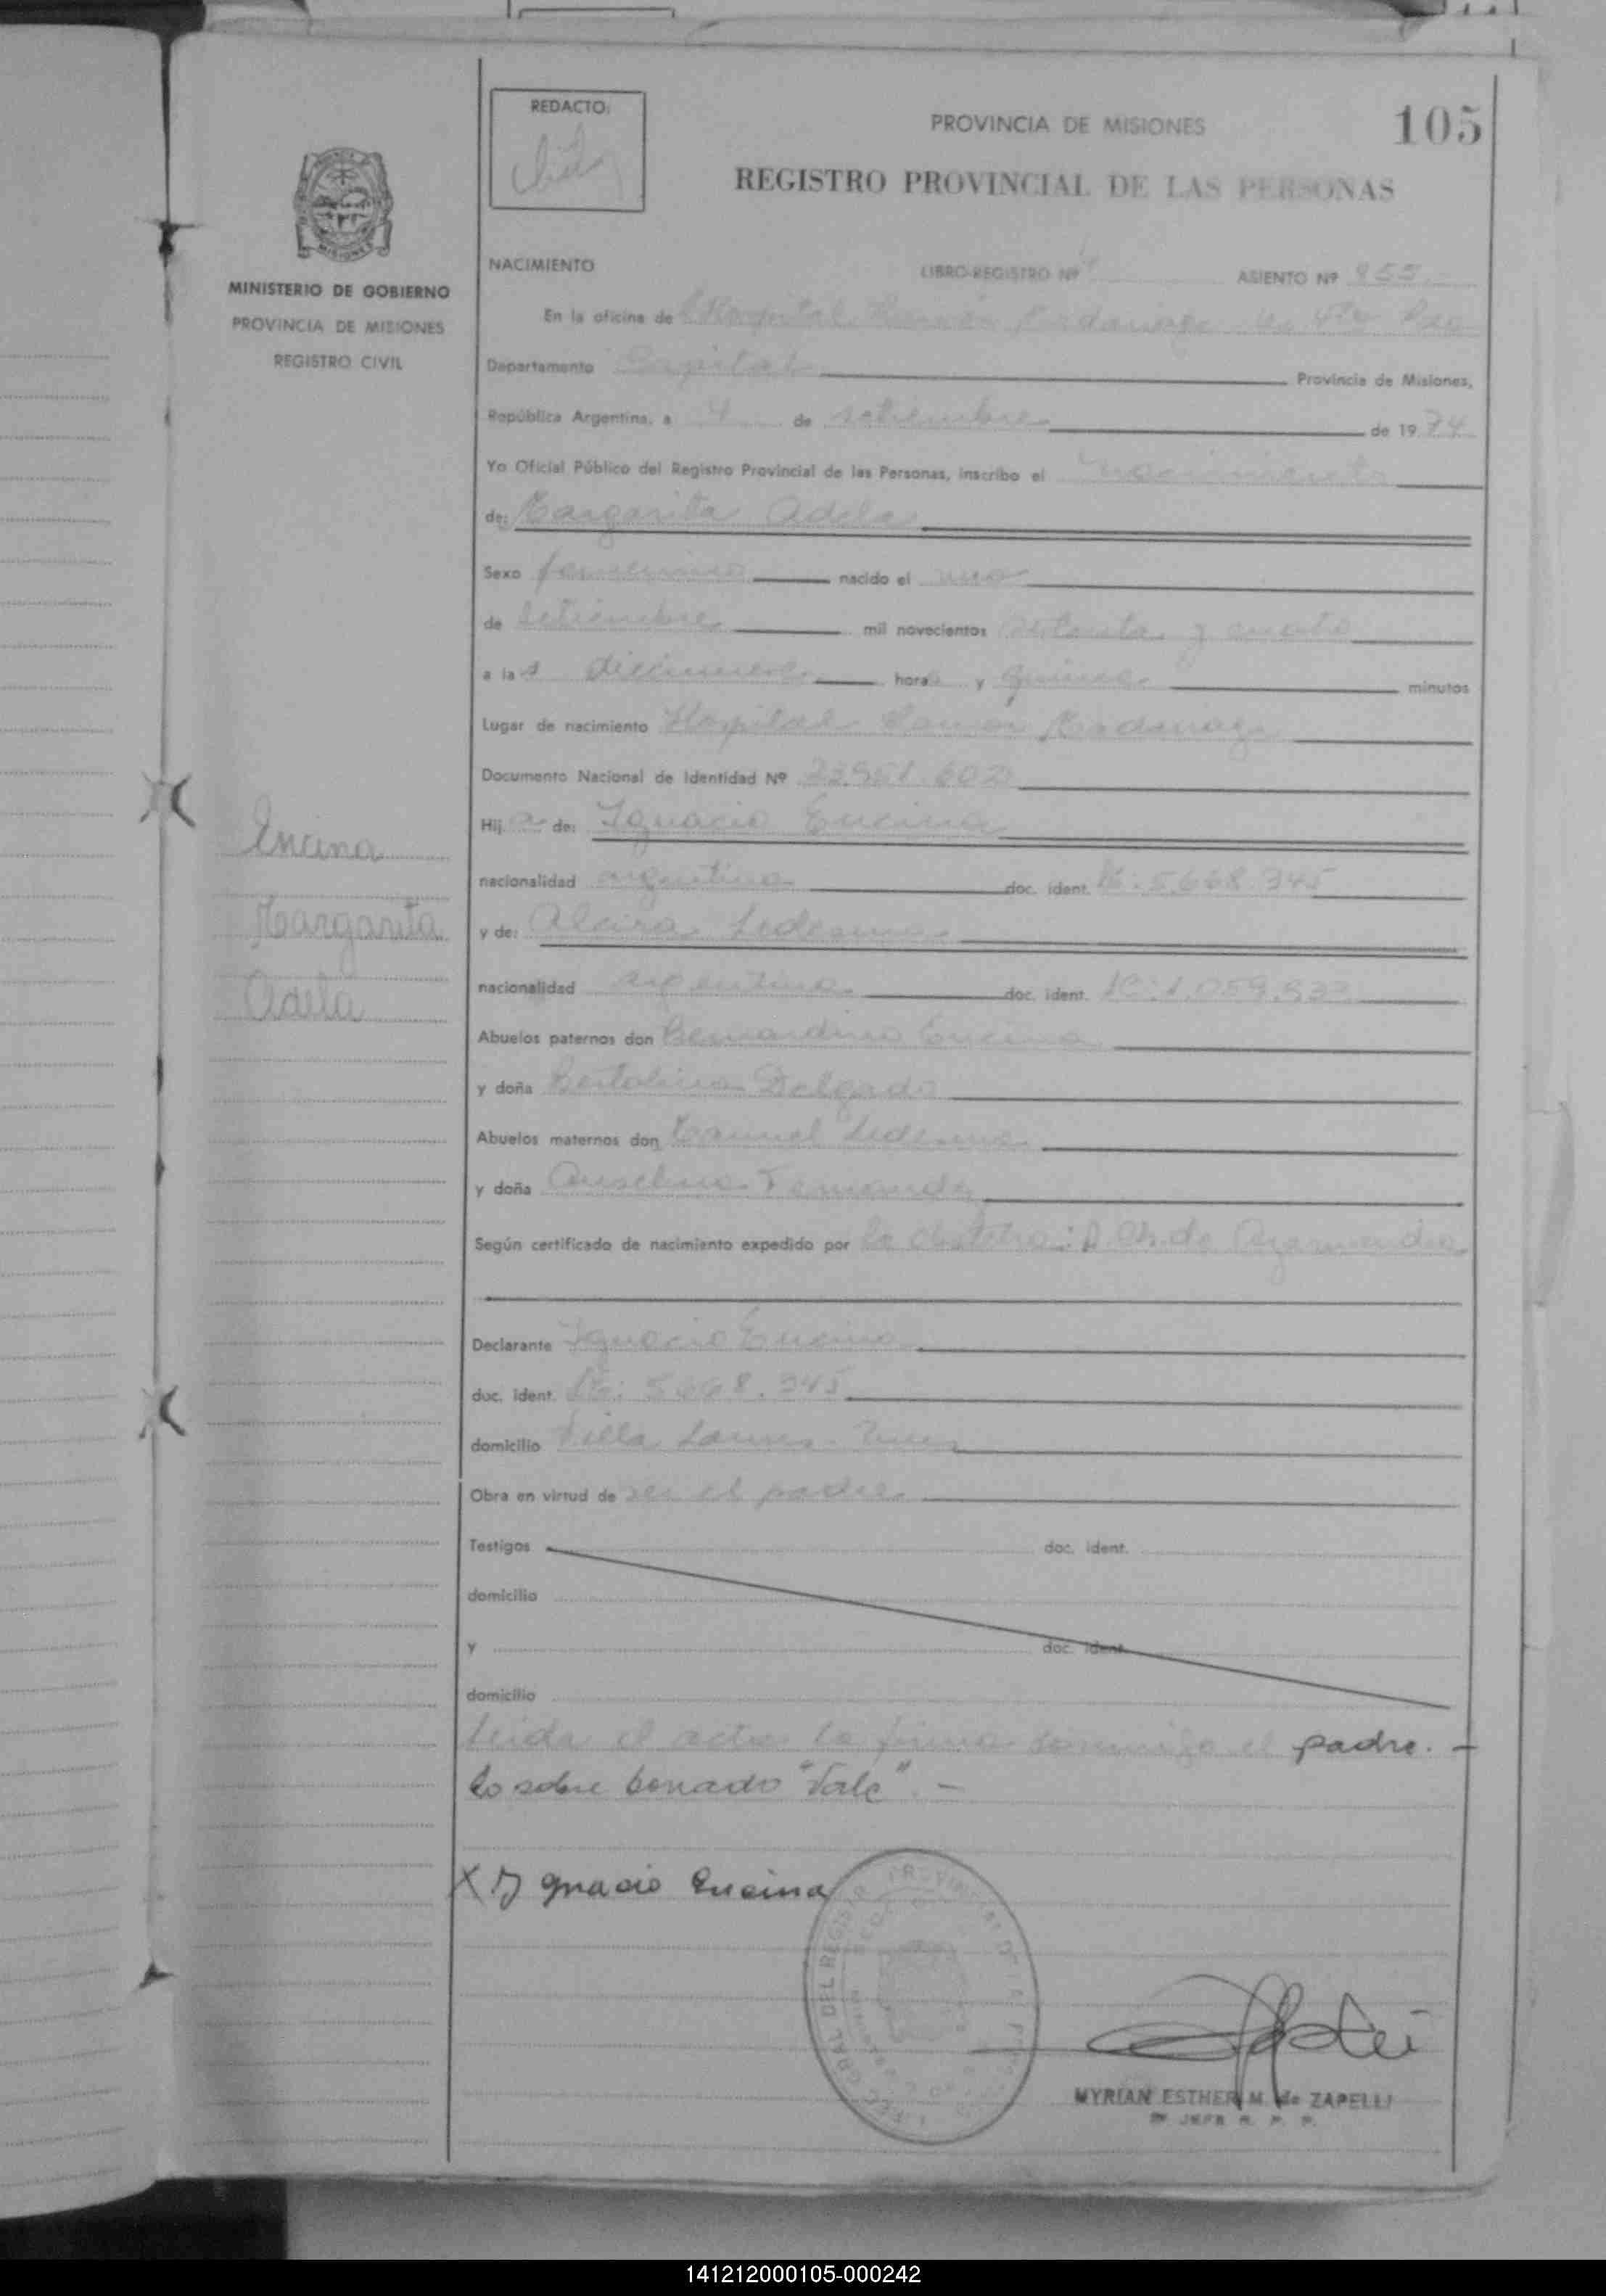 REDACTO:
PROVINCIA DE MISIONES
105
REGISTRO PROVINCIAL DE LAS PERSONAS
MINISTERIO DE GOBIERNO
PROVINCIA DE MISIONES
REGISTRO CIVIL
NACIMIENTO LIBRO-REGISTRO Nº ASIENTO Nº 855
En la oficina de Hospital Ramón Madariaga
Departamento Capital Provincia de Misiones,
República Argentina, a 4 de setiembre de 1974
Yo Oficial Público del Registro Provincial de las Personas, inscribo el nacimiento
de: Margarita Adela
Sexo femenino nacido el uno
de setiembre mil novecientos setenta y cuatro
a las diecinueve horas y quince minutos
Lugar de nacimiento Hospital Ramón Madariaga
Documento Nacional de Identidad Nº
Hija de: Ignacio Encina
nacionalidad argentina doc. ident. 5.668.345
y de: Alcira Ledesma
nacionalidad argentina doc. ident.
Abuelos paternos don Bernardino Encina
y doña Delgado
Abuelos maternos don Manuel Ledesma
y doña Anselma Fernandez
Según certificado de nacimiento expedido por la obstetra:
Declarante Ignacio Encina
doc. ident. 5.668.345
domicilio Villa
Obra en virtud de ser el padre
Testigos doc. ident.
domicilio
y doc. ident.
domicilio
Leida el acta la firma conmigo el padre. -
Lo sobre borrado "Vale". -
X Ignacio Encina
MYRIAN ESTHER M. de ZAPELLI
JEFE R. P. P.
Encina
Margarita
Adela
141212000105-000242